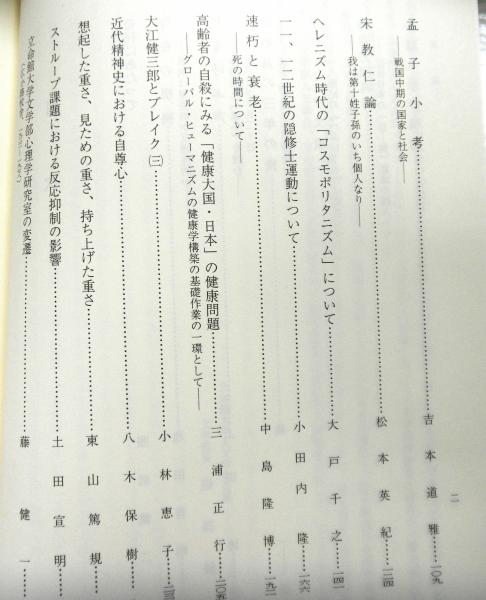 二
孟子小考……吉本道雅……一〇九
――戦国中期の国家と社会――
宋教仁論……松本英紀……一二四
――我は第十姓子孫のいち個人なり――
ヘレニズム時代の「コスモポリタニズム」について……大戸千之……一四一
一一、一二世紀の隠修士運動について……小田内隆……一六六
速朽と衰老……中島隆博……一九二
――死の時間について――
高齢者の自殺にみる「健康大国・日本」の健康問題……三浦正行……二〇五
――グローバル・ヒューマニズムの健康学構築の基礎作業の一環として――
大江健三郎とブレイク（三）……小林恵子……二三
近代精神史における自尊心……八木保樹……
想起した重さ、見ための重さ、持ち上げた重さ……東山篤規……
ストループ課題における反応抑制の影響……土田宣明……
立命館大学文学部心理学研究室の変遷……藤健一……